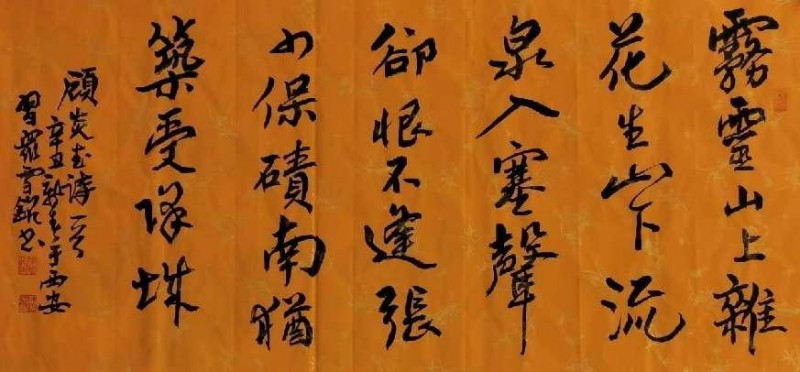 霧靈山上雜
花生山下流
泉入塞聲
卻恨不逢張
少保磧南猶
築受降城
顧炎武詩一首
辛丑新春于西安
習雪书